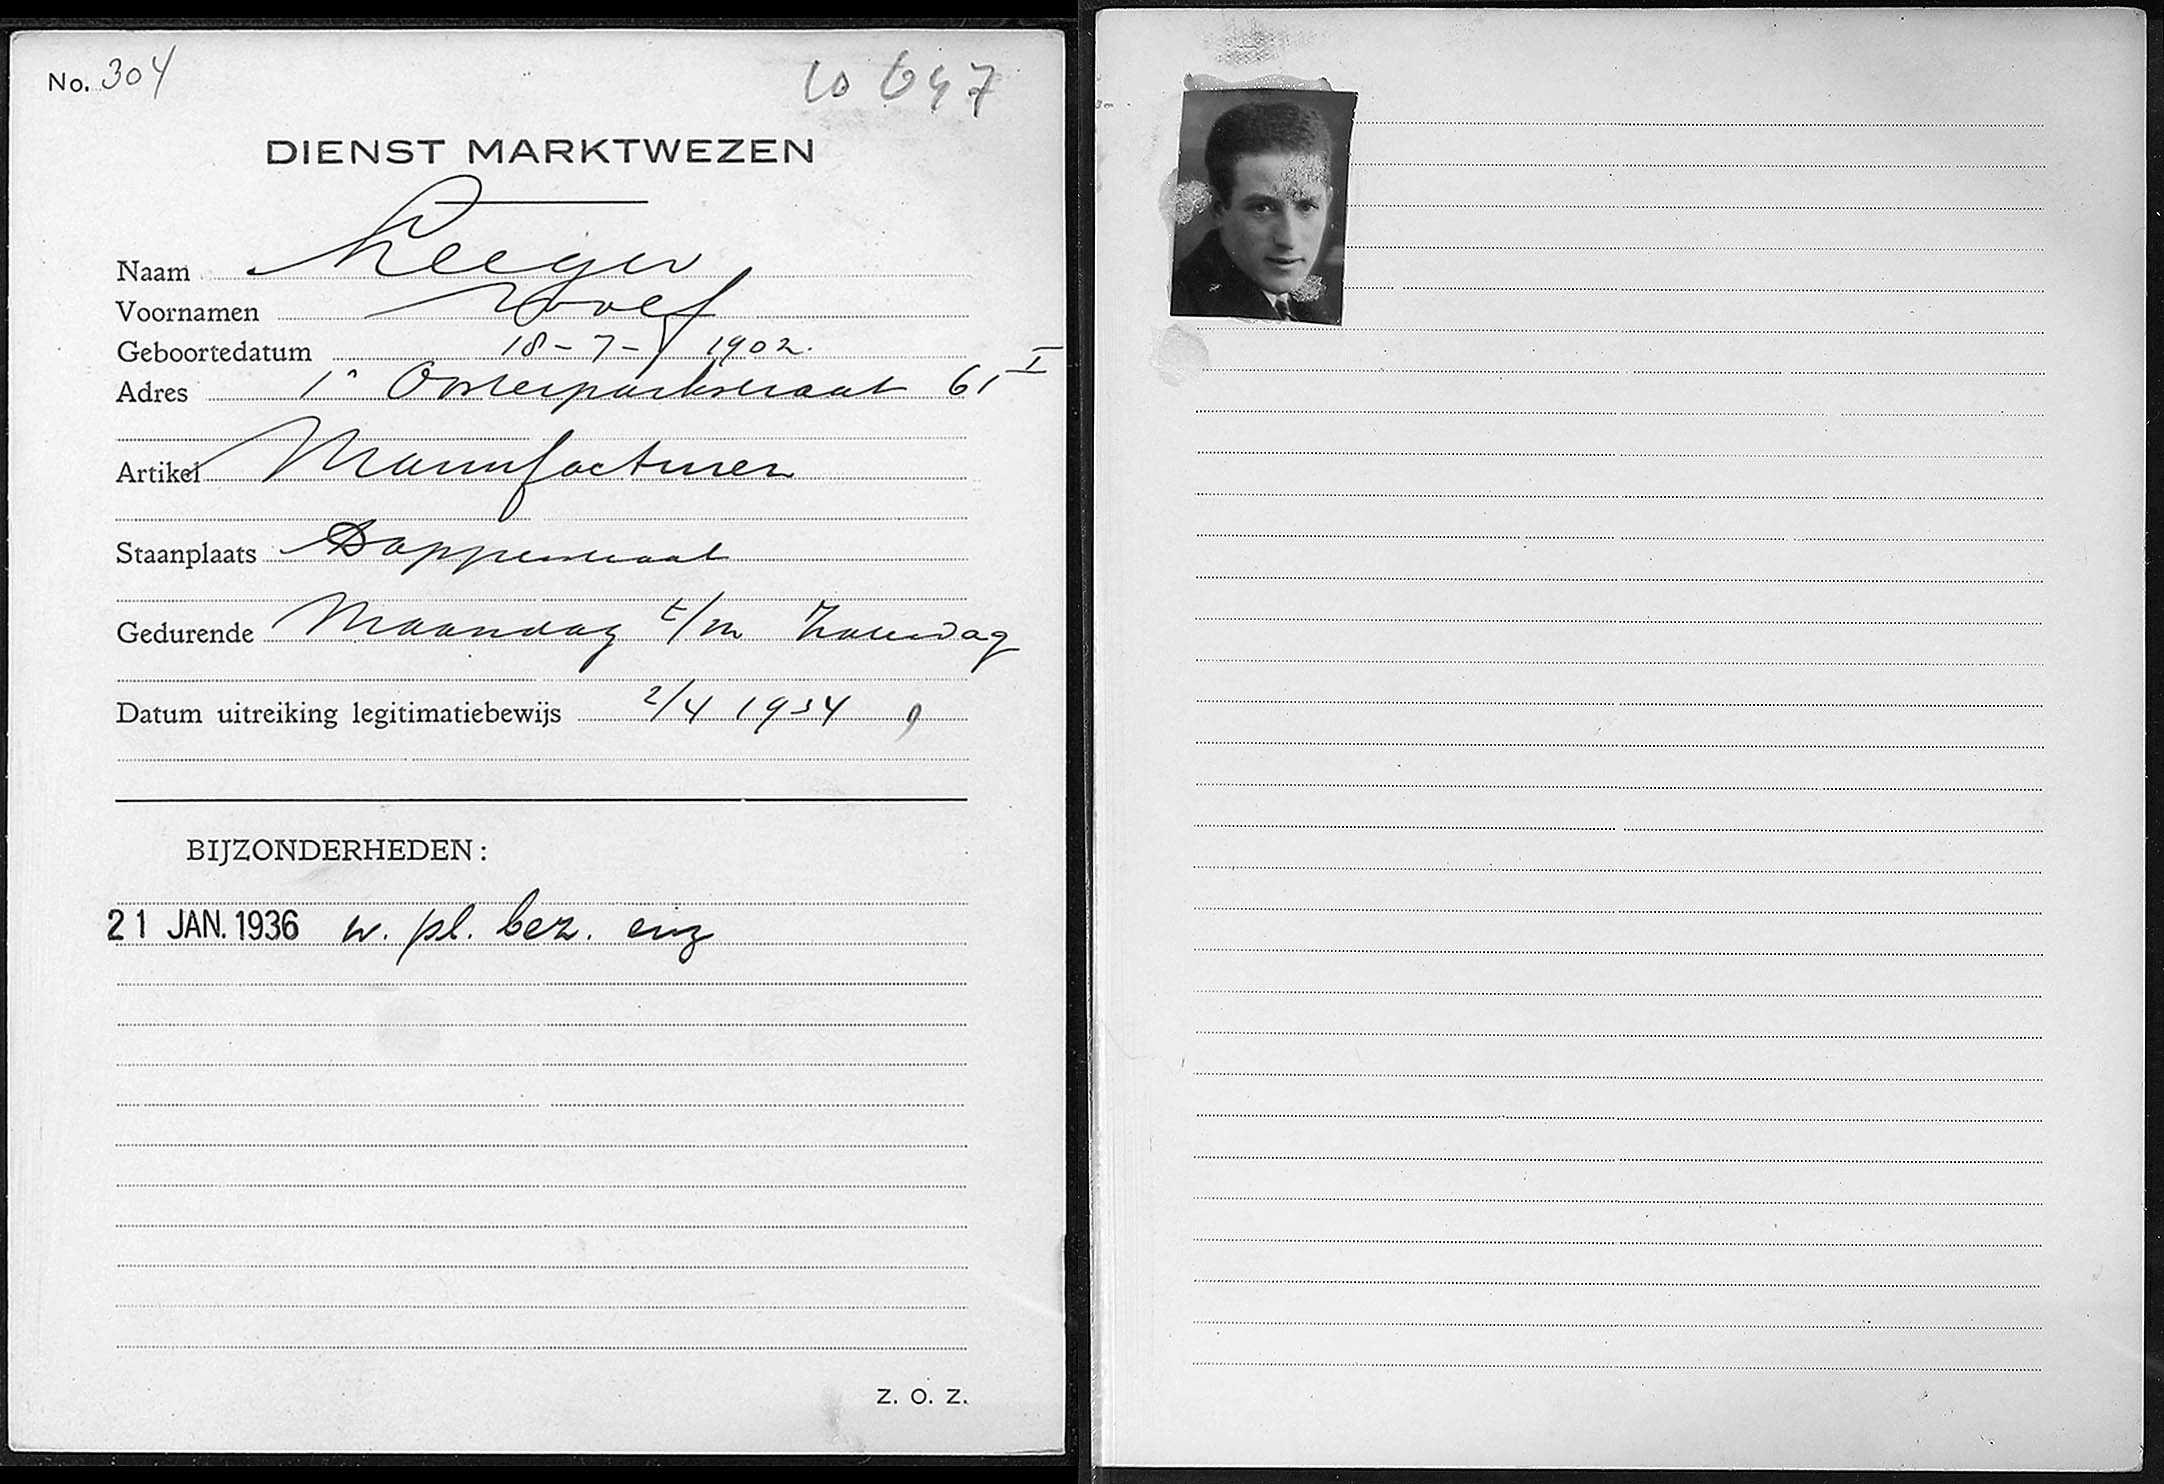 No. 304
10647
DIENST MARKTWEZEN
Naam Leeger
Voornamen Wolf
Geboortedatum 18-7-1902.
Adres 1e Oosterparkstraat 61 I
Artikel Manufacturen
Staanplaats Dapperstraat
Gedurende Maandag t/m Zaterdag
Datum uitreiking legitimatiebewijs 2/4 1934
BIJZONDERHEDEN:
21 JAN. 1936 w. pl. bez.
Z. O. Z.